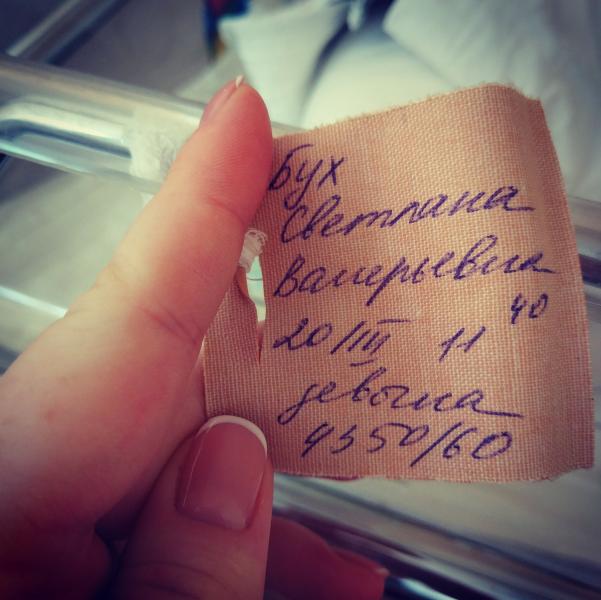 Бух
Светлана
Валерьевна
20/III 11 40
девочка
4550/60